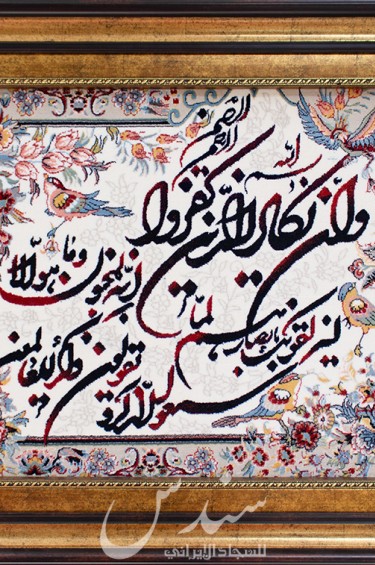 بسم الله
الرحمن الرحيم
وان يكاد الذين كفروا
ليزلقونك بابصارهم لما
سمعوا الذكر و
يقولون
انه لمجنون
وما هو الا
ذكر للعالمين
سندس
للسجاد الايراني